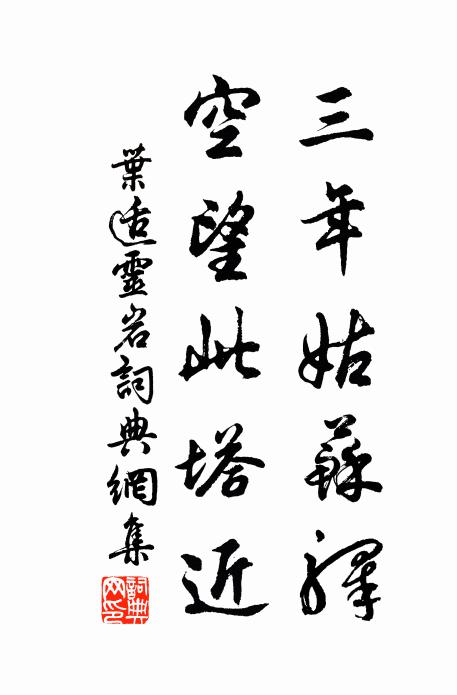 三年姑蘇驛
空望此塔近
葉适靈岩詞典網集
詞典网印